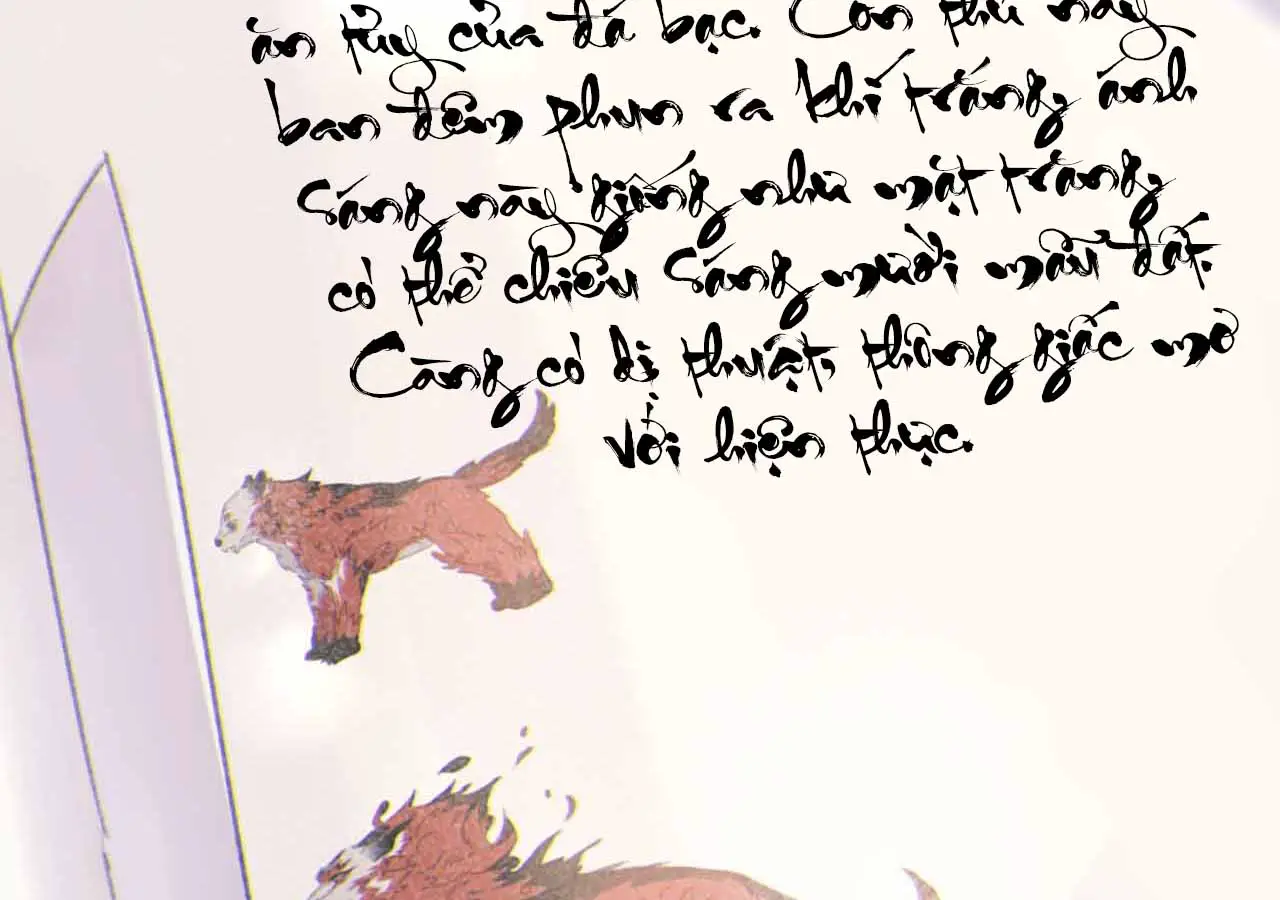 ăn tủy của đá bạc. Con thú này
ban đêm phun ra khí trắng, ánh
sáng này giống như mặt trăng,
có thể chiếu sáng mười mẫu đất.
Càng có dị thuật, thông giấc mơ
với hiện thực.